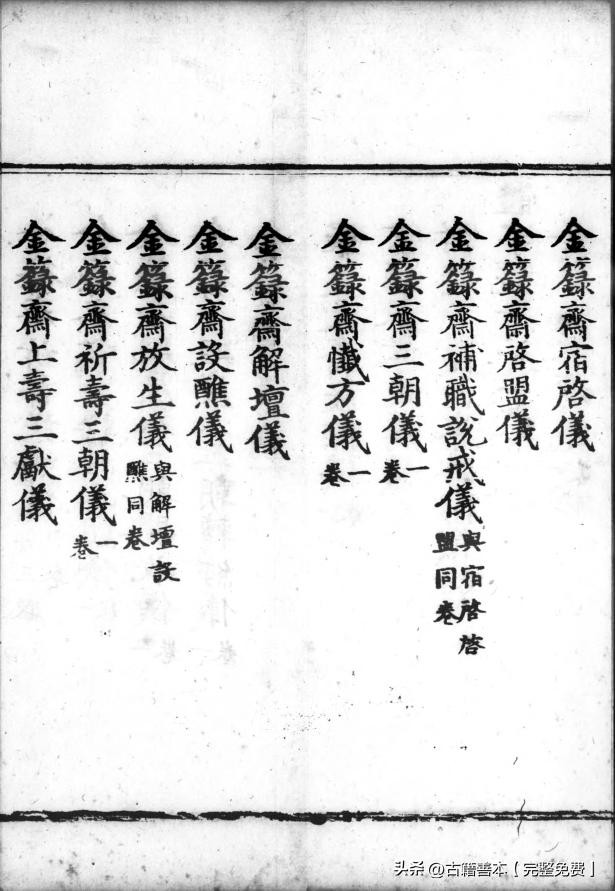 金籙齋宿啓儀
金籙齋啓盟儀
金籙齋補職說戒儀與宿啓啓盟同卷
金籙齋三朝儀一卷
金籙齋懺方儀一卷
金籙齋解壇儀
金籙齋設醮儀
金籙齋放生儀與解壇設醮同卷
金籙齋祈壽三朝儀一卷
金籙齋上壽三獻儀
头条 @古籍善本【完整免费】